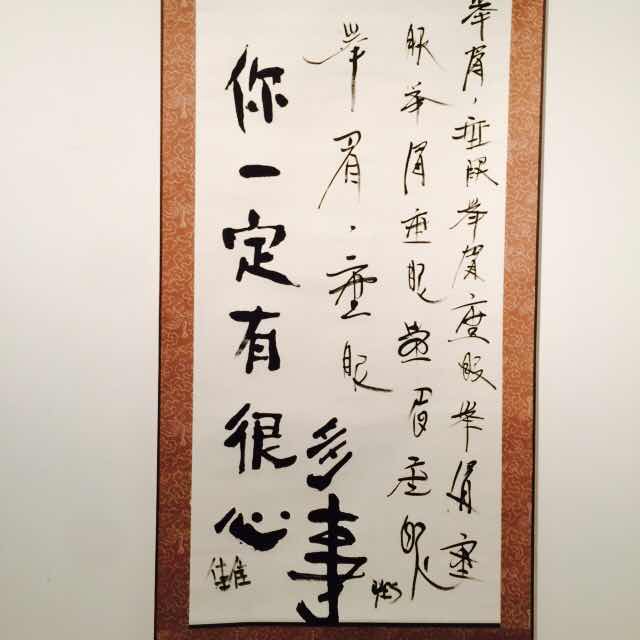 举眉，垂眼举眉垂眼举眉垂
眼举眉垂眼举眉垂眼
举眉，垂眼
你一定有很多心事
YES